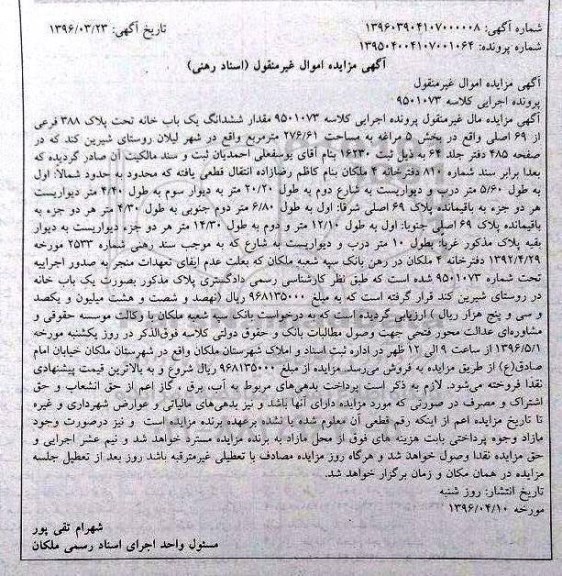 شماره آگهی: ۱۳۹۶۰۳۹۰۴۱۰۷۰۰۰۰۰۸
تاریخ آگهی: ۱۳۹۶/۰۳/۲۳
شماره پرونده: ۱۳۹۵۰۴۰۰۴۱۰۷۰۰۱۰۶۴
آگهی مزایده اموال غیرمنقول (اسناد رهنی)
آگهی مزایده اموال غیرمنقول
پرونده اجرایی کلاسه ۹۵۰۱۰۷۳
آگهی مزایده مال غیرمنقول پرونده اجرایی کلاسه ۹۵۰۱۰۷۳ مقدار ششدانگ یک باب خانه تحت پلاک ۳۸۸ فرعی
از ۶۹ اصلی واقع در بخش ۵ مراغه به مساحت ۲۷۶/۶۱ مترمربع واقع در شهر لیلان روستای شیرین کند که در
صفحه ۴۸۵ دفتر جلد ۶۴ به ذیل ثبت ۱۶۲۳۰ بنام آقای یوسفعلی احمدیان ثبت و سند مالکیت آن صادر گردیده که
بعدا برابر سند شماره ۸۱۱۰ دفترخانه ۴ ملکان بنام کاظم رضازاده انتقال قطعی یافته که محدود به حدود شمالا: اول
به طول ۵/۶۰ متر درب و دیواریست به شارع دوم به طول ۲۰/۲۰ متر به دیوار سوم به طول ۴/۴۰ متر دیواریست
هر دو جزء به باقیمانده پلاک ۶۹ اصلی شرقا: اول به طول ۶/۸۰ متر دوم جنوبی به طول ۴/۳۰ متر هر دو جزء به
باقیمانده پلاک ۶۹ اصلی جنوبا: اول به طول ۱۲/۱۰ متر و دوم به طول ۱۴/۳۰ متر هر دو جزء دیواریست به دیوار
بقیه پلاک مذکور غربا: بطول ۱۰ متر درب و دیواریست به شارع که به موجب سند رهنی شماره ۲۵۳۳ مورخه
۱۳۹۲/۴/۲۹ دفترخانه ۴ ملکان در رهن بانک سپه شعبه ملکان که بعلت عدم ایفای تعهدات منجر به صدور اجراییه
تحت شماره ۹۵۰۱۰۷۳ شده است که طبق نظر کارشناسی رسمی دادگستری پلاک مذکور بصورت یک باب خانه
در روستای شیرین کند قرار گرفته است که به مبلغ ۹۶۸۱۳۵۰۰۰ ریال (نهصد و شصت و هشت میلیون و یکصد
و سی و پنج هزار ریال ) ارزیابی گردیده است که به درخواست بانک سپه شعبه ملکان با وکالت موسسه حقوقی و
مشاوره‌ای عدالت محور فتحی جهت وصول مطالبات بانک و حقوق دولتی کلاسه فوق‌الذکر در روز یکشنبه مورخه
۱۳۹۶/۵/۱ از ساعت ۹ الی ۱۲ ظهر در اداره ثبت اسناد و املاک شهرستان ملکان واقع در شهرستان ملکان خیابان امام
صادق(ع) از طریق مزایده به فروش می‌رسد. مزایده از مبلغ ۹۶۸۱۳۵۰۰۰ ریال شروع و به بالاترین قیمت پیشنهادی
نقدا فروخته می‌شود. لازم به ذکر است پرداخت بدهی‌های مربوط به آب، برق ، گاز اعم از حق انشعاب و حق
اشتراک و مصرف در صورتی که مورد مزایده دارای آنها باشد و نیز بدهی‌های مالیاتی و عوارض شهرداری و غیره
تا تاریخ مزایده اعم از اینکه رقم قطعی آن معلوم شده یا نشده برعهده برنده مزایده است و نیز درصورت وجود
مازاد وجوه پرداختی بابت هزینه های فوق از محل مازاد به برنده مزایده مسترد خواهد شد و نیم عشر اجرایی و
حق مزایده نقدا وصول خواهد شد و هرگاه روز مزایده مصادف با تعطیلی غیرمترقبه باشد روز بعد از تعطیل جلسه
مزایده در همان مکان و زمان برگزار خواهد شد.
تاریخ انتشار: روز شنبه
مورخه ۱۳۹۶/۰۴/۱۰
شهرام تقی پور
مسئول واحد اجرای اسناد رسمی ملکان